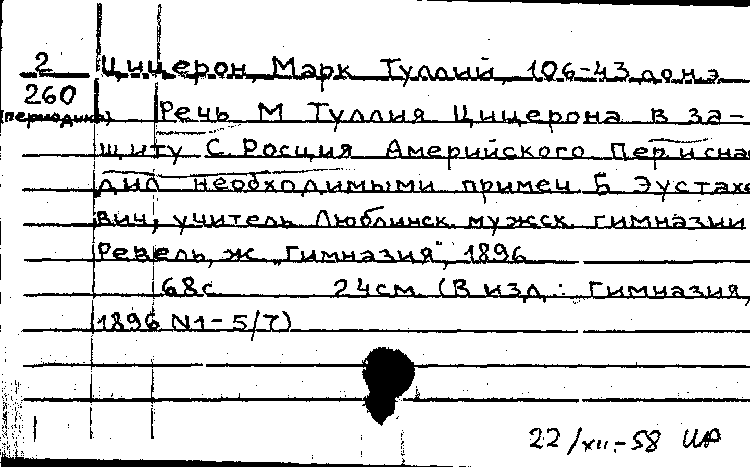 2
260
(периодика)
Цицерон, Марк Туллий, 106-43 до н э
Речь М Туллия Цицерона в за-
щиту С. Росция Америйского Пер и снаб
дил необходимыми примеч Б Эустахе
вич, учитель Люблинск. мужск. гимназии
Ревель, ж. „Гимназия", 1896
68с 24см (В изд.: Гимназия,
1896 N1-5/7)
22/XII-58